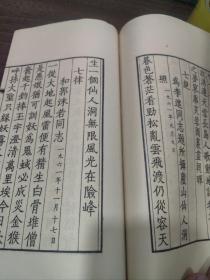 天雪長島人
七絕
爲李進同志題所攝廬山仙人洞
照 一九六一年九月九日
暮色蒼茫看勁松亂雲飛渡仍從容天
生一個仙人洞無限風光在險峰
七律
和郭沫若同志 一九六一年十一月十七日
一從大地起風雷便有精生白骨堆僧
是愚氓猶可訓妖爲鬼蜮必成災金猴
奮起千鈞棒玉宇澄清萬里埃今日歡
呼孫大聖只緣妖霧